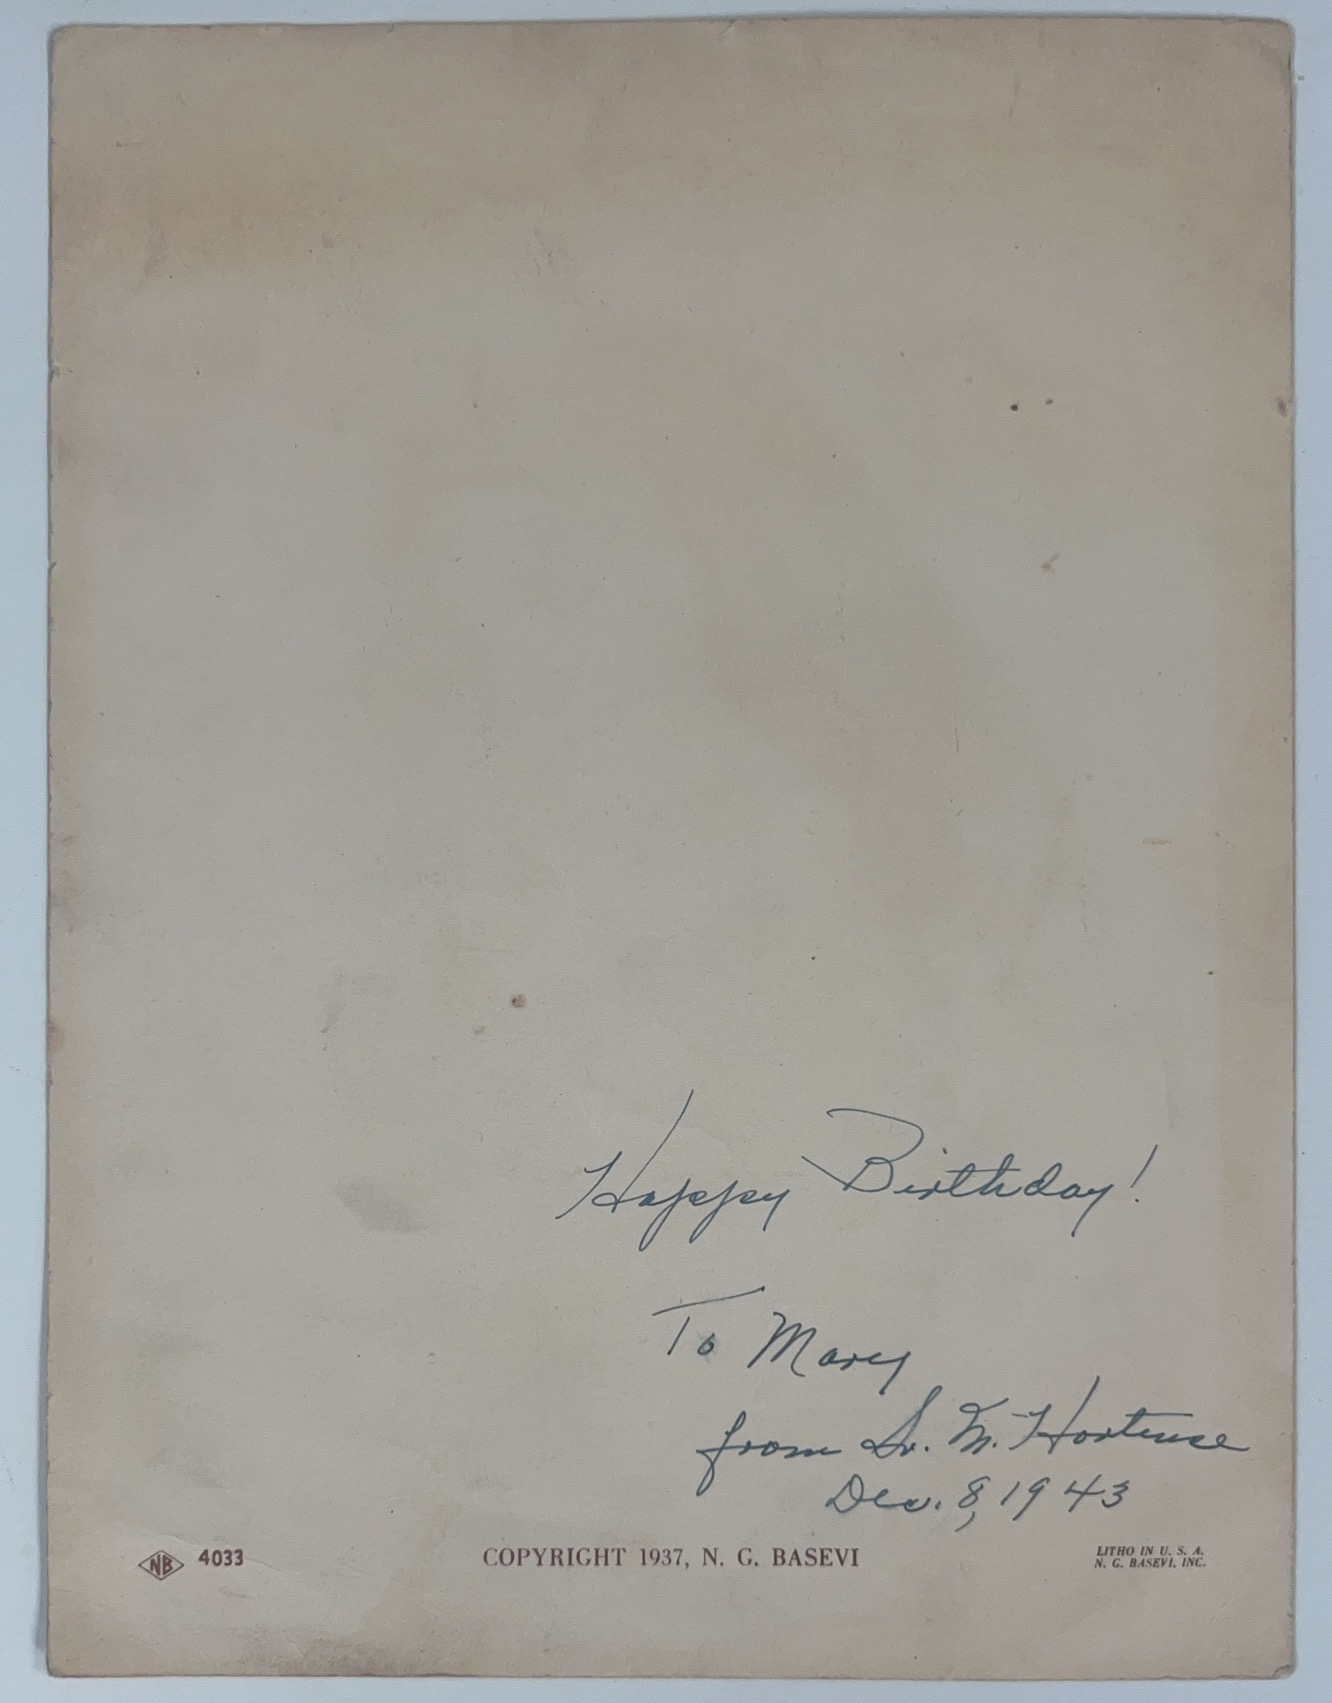 Happy Birthday!
To Mary
from Sr. M. Hortense
Dec. 8, 1943
NB 4033
COPYRIGHT 1937, N. G. BASEVI
LITHO IN U. S. A.
N. G. BASEVI, INC.